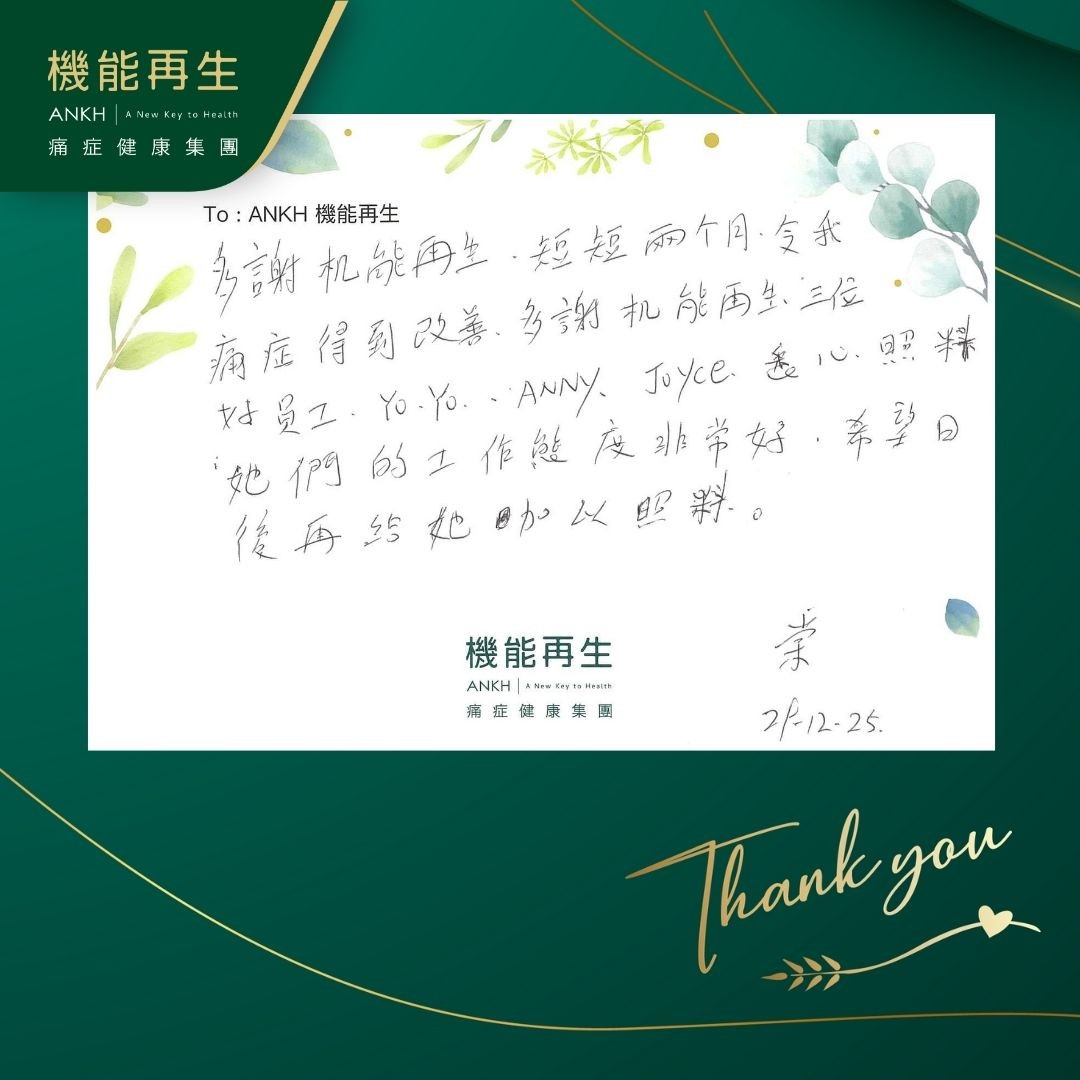 機能再生
ANKH | A New Key to Health
痛症健康集團
To : ANKH 機能再生
多謝机能再生．短短兩个月．令我
痛症得到改善、多謝机能再生、三位
好員工．Yo.Yo.、ANNY、Joyce. 悉心．照料
她們的工作態度非常好．希望日
後再给她加以照料。
機能再生
ANKH | A New Key to Health
痛症健康集團
-12-25.
Thank you